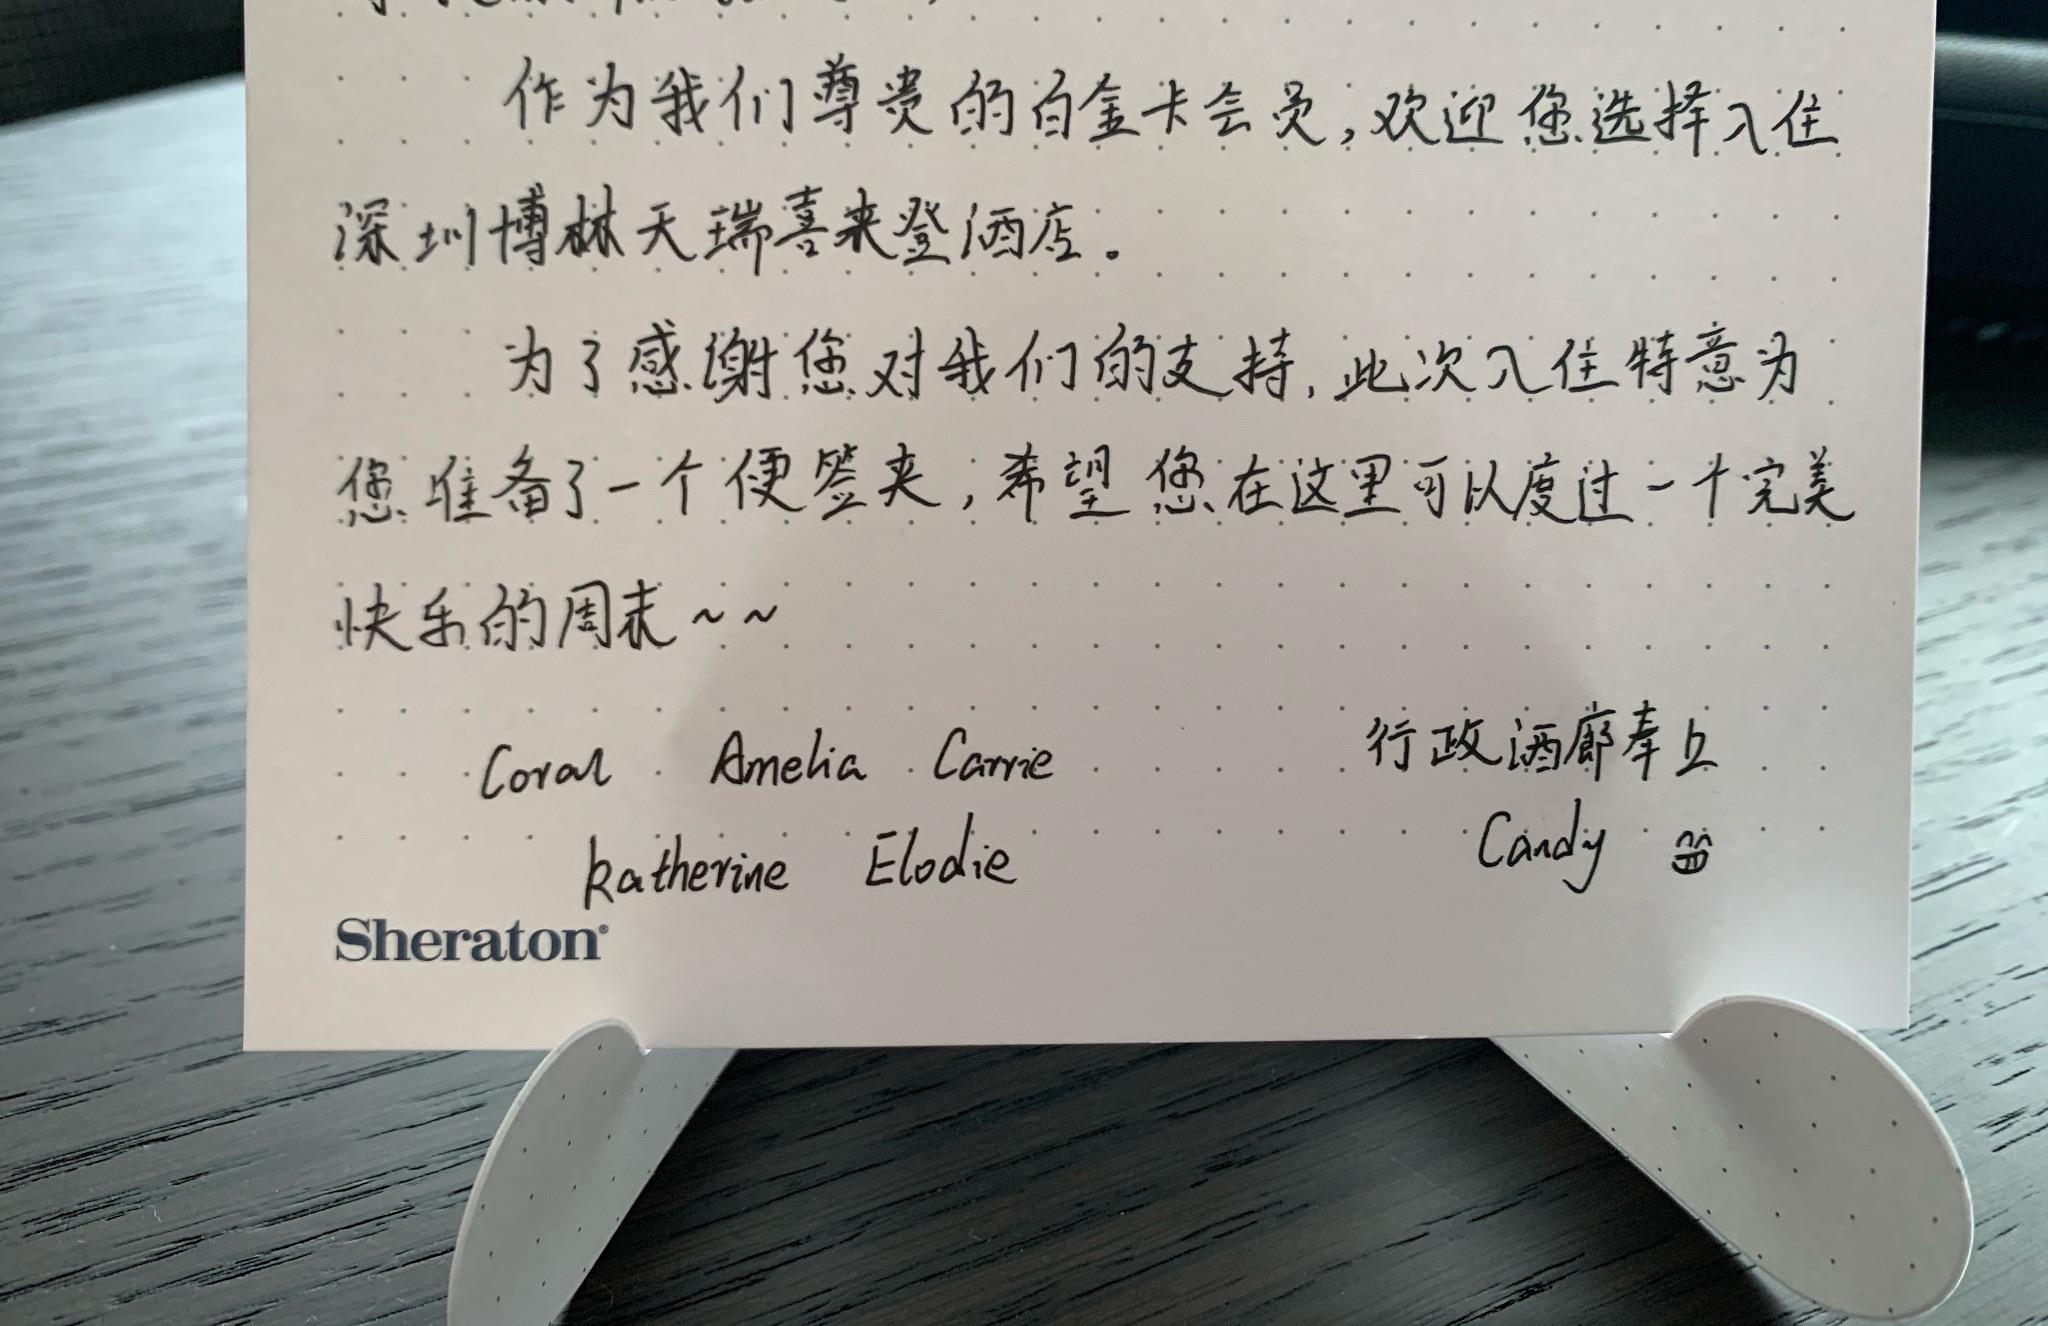 作为我们尊贵的白金卡会员,欢迎您选择入住
深圳博林天瑞喜来登酒店。
为了感谢您对我们的支持,此次入住特意为
您准备了一个便签夹,希望您在这里可以度过一个完美
快乐的周末~~
行政酒廊奉上
Coral Amelia Carrie
Katherine Elodie
Candy
Sheraton®